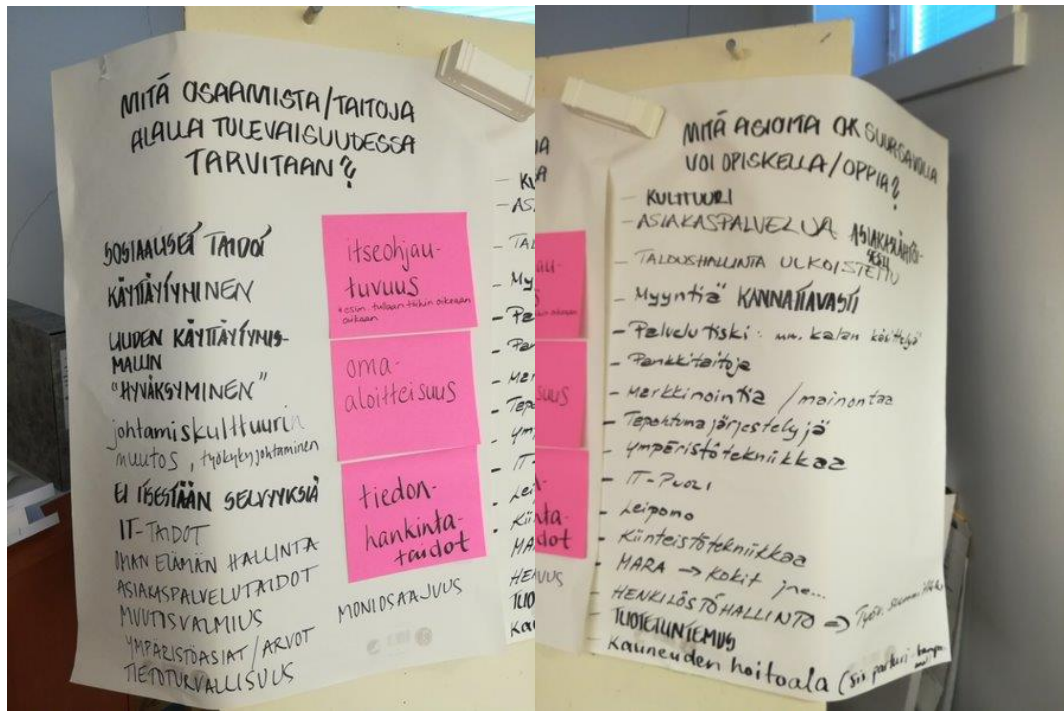 MITÄ OSAAMISTA/TAITOJA
ALALLA TULEVAISUUDESSA
TARVITAAN?
SOSIAALISET TAIDOT
KÄYTTÄYTYMINEN
UUDEN KÄYTTÄYTYMIS-
MALLIN
"HYVÄKSYMINEN"
johtamiskulttuurin
muutos, työkykyjohtaminen
EI ITSESTÄÄN SELVYYKSIÄ
IT-TAIDOT
OMAN ELÄMÄN HALLINTA
ASIAKASPALVELUTAIDOT
MUUTOSVALMIUS
YMPÄRISTÖASIAT/ARVOT
TIETOTURVALLISUUS
itseohjau-
tuvuus
*esim. tullaan töihin oikeaan
aikaan
oma-
aloitteisuus
tiedon-
hankinta-
taidot
MONIOSAAJUUS
MITÄ ASIOITA OK SUURSAVOLLA
VOI OPISKELLA/OPPIA?
- KULTTUURI
- ASIAKASPALVELUA ASIAKASLÄHTÖI-
SESTI
- TALOUSHALLINTA ULKOISTETTU
- Myyntiä KANNATTAVASTI
- Palvelutiski: mm. kalan käsittelyä
- Pankkitaitoja
- Markkinointia / mainontaa
- Tapahtumajärjestelyjä
- Ympäristötekniikkaa
- IT-PUOLI
- Leipomo
- Kiinteistötekniikkaa
- MARA → Kokit jne...
- HENKILÖSTÖHALLINTO ⇒
- TUOTETUNTEMUS
- Kauneudenhoitoala (siis parturi